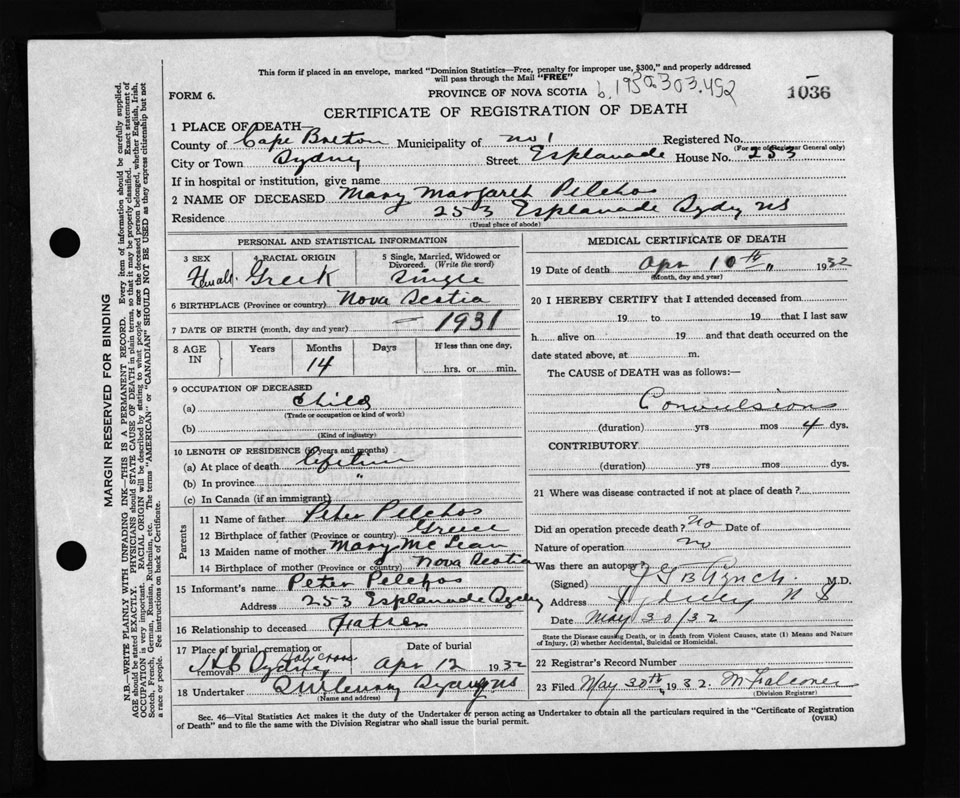 This form if placed in an envelope, marked "Dominion Statistics—Free, penalty for improper use, $300," and properly addressed
will pass through the Mail "FREE"
FORM 6.
PROVINCE OF NOVA SCOTIA
1036
CERTIFICATE OF REGISTRATION OF DEATH
1 PLACE OF DEATH—
County of Cape Breton Municipality of No 1 Registered No.
(For use of Registrar General only)
City or Town Sydney Street Esplanade House No. 253
If in hospital or institution, give name
2 NAME OF DECEASED Mary Margaret Pelchos
Residence 253 Esplanade Sydy NS
(Usual place of abode)
PERSONAL AND STATISTICAL INFORMATION
3 SEX 4 RACIAL ORIGIN 5 Single, Married, Widowed or
Divorced. (Write the word)
Female Greek Single
6 BIRTHPLACE (Province or country) Nova Scotia
7 DATE OF BIRTH (month, day and year) — 1931
8 AGE IN Years Months Days If less than one day,
14 hrs. or min.
9 OCCUPATION OF DECEASED
(a) Child
(Trade or occupation or kind of work)
(b)
(Kind of industry)
10 LENGTH OF RESIDENCE (in years and months)
(a) At place of death lifetime
(b) In province "
(c) In Canada (if an immigrant)
Parents
11 Name of father Peter Pelchos
12 Birthplace of father (Province or country) Greece
13 Maiden name of mother Mary McLean
14 Birthplace of mother (Province or country) Nova Scotia
15 Informant's name Peter Pelchos
Address 253 Esplanade Sydey
16 Relationship to deceased Father
17 Place of burial, cremation or removal Date of burial
Holy Cross
Apr 12 1932
18 Undertaker
(Name and address)
MEDICAL CERTIFICATE OF DEATH
19 Date of death Apr 10th " 1932
(Month, day and year)
20 I HEREBY CERTIFY that I attended deceased from
19 to 19 that I last saw
h alive on 19 and that death occurred on the
date stated above, at m.
The CAUSE of DEATH was as follows:—
Convulsions
(duration) yrs mos 4 dys.
CONTRIBUTORY
(duration) yrs mos dys.
21 Where was disease contracted if not at place of death?
Did an operation precede death? No Date of
Nature of operation No
Was there an autopsy?
(Signed) Lynch M.D.
Address Sydney N S
Date May 30/32
State the Disease causing Death, or in death from Violent Causes, state (1) Means and Nature
of Injury, (2) whether Accidental, Suicidal or Homicidal.
22 Registrar's Record Number
23 Filed May 30th, 1932. M Falconer
(Division Registrar)
Sec. 46—Vital Statistics Act makes it the duty of the Undertaker or person acting as Undertaker to obtain all the particulars required in the "Certificate of Registration
of Death" and to file the same with the Division Registrar who shall issue the burial permit.
(OVER)
MARGIN RESERVED FOR BINDING
N.B.—WRITE PLAINLY WITH UNFADING INK—THIS IS A PERMANENT RECORD. Every item of information should be carefully supplied.
AGE should be stated EXACTLY. PHYSICIANS should STATE CAUSE OF DEATH in plain terms, so that it may be properly classified. Exact statement of
OCCUPATION is very important. RACIAL ORIGIN will be described by stating to what people or race the deceased person belonged, whether English, Irish,
Scotch, French, German, Russian, Ruthenian, etc. The terms "AMERICAN" or "CANADIAN" SHOULD NOT BE USED as they express citizenship but not
a race or people. See instructions on back of Certificate.